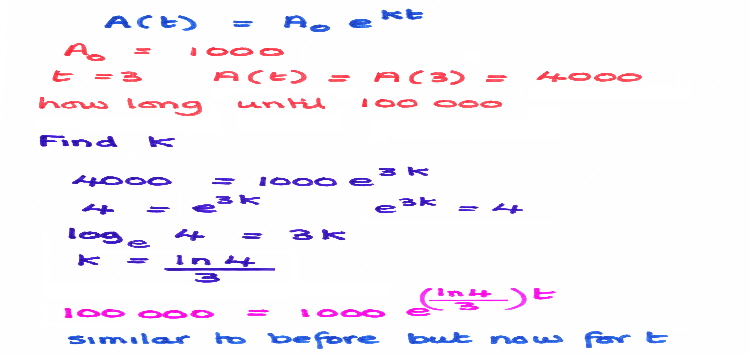 A(t) = A₀ e^kt
A₀ = 1000
t = 3 A(t) = A(3) = 4000
how long until 100 000
Find k
4000 = 1000 e^3k
4 = e^3k e^3k = 4
logₑ 4 = 3k
k = ln 4 / 3
100 000 = 1000 e^(ln4/3)t
similar to before but now for t